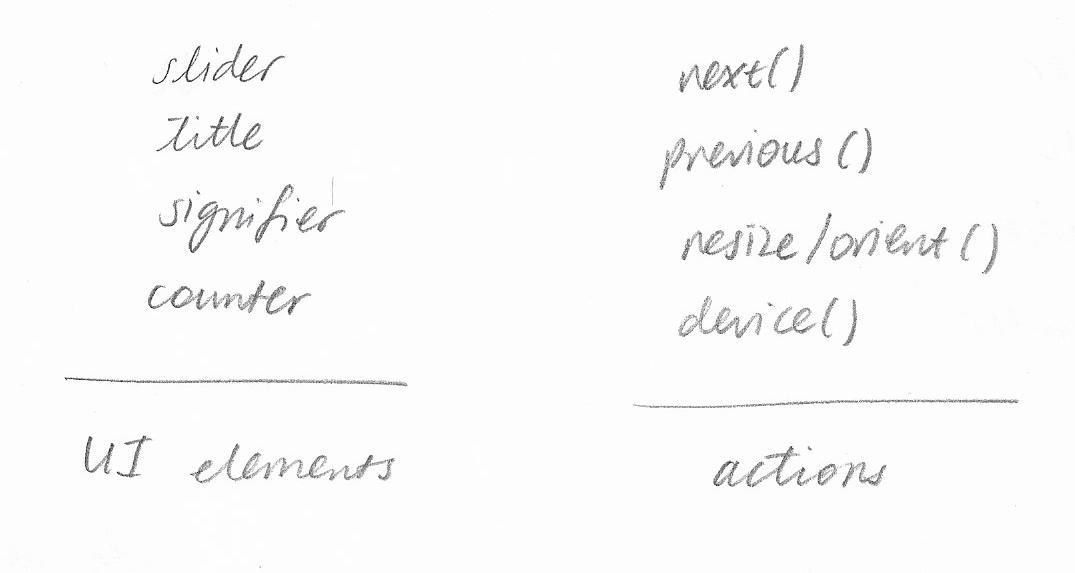 slider
title
signifier
counter
UI elements
next()
previous()
resize/orient()
device()
actions